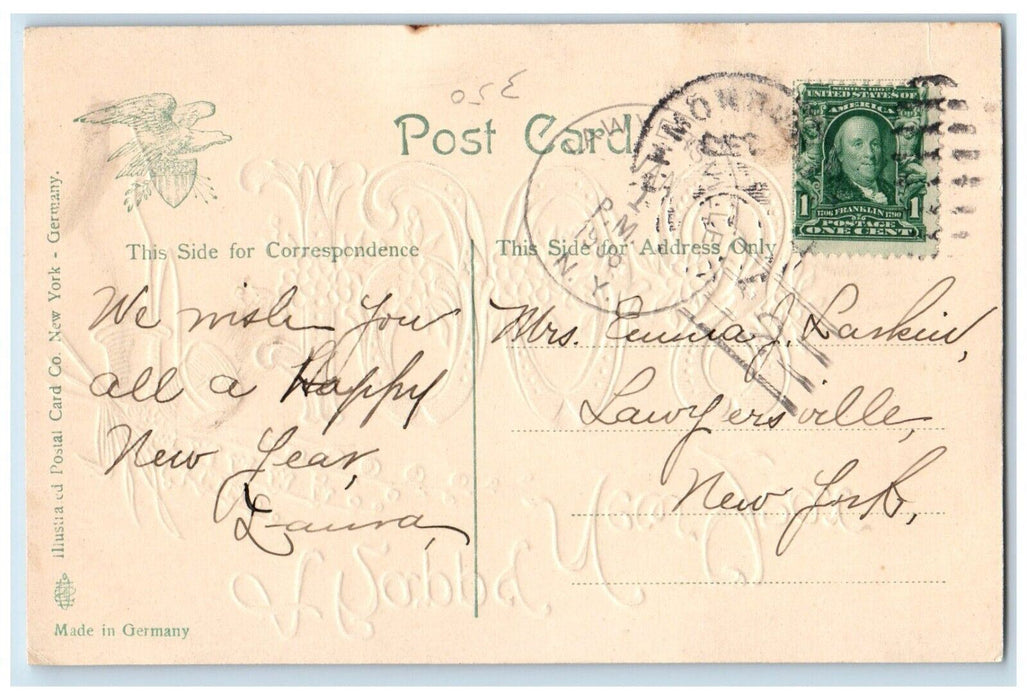 350
Post Card
This Side for Correspondence
This Side for Address Only
We wish you
all a Happy
New Year,
Laura,
Mrs. Emma J. Larkin,
Lawyersville,
New York,
SERIES 1902
UNITED STATES OF
AMERICA
1 1706 FRANKLIN 1790 1
POSTAGE
ONE CENT
P.M.
1908
N.Y.
Illustrated Postal Card Co. New York - Germany.
Made in Germany
Happy
New Year